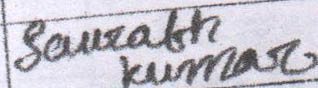 Saurabh
kumar